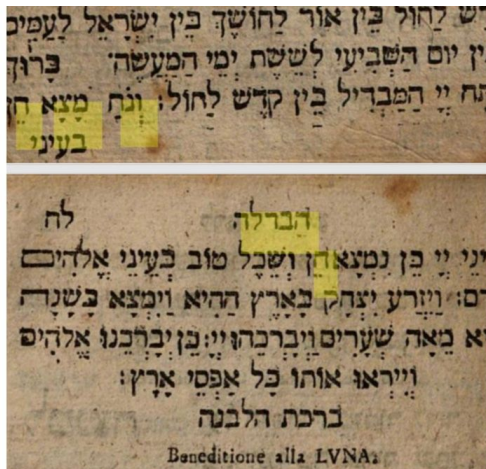 דֶשׁ לְחוֹל בֵּין אוֹר לְחוֹשֶׁךְ בֵּין יִשְׂרָאֵל לָעַמִּים
ין יוֹם הַשְּׁבִיעִי לְשֵׁשֶׁת יְמֵי הַמַּעֲשֶׂה· בָּרוּךְ
תה יְיָ הַמַּבְדִּיל בֵּין קֹדֶשׁ לְחוֹל: וְנֹחַ מָצָא חֵן
בעיני
הַבדלה לח
ינֵי יְיָ כֵּן נִמְצָא חֵן וְשֵׂכֶל טוֹב בְּעֵינֵי אֱלֹהִים
דָם: וַיִּזְרַע יִצְחָק בָּאָרֶץ הַהִיא וַיִּמְצָא בַּשָּׁנָה
א מֵאָה שְׁעָרִים וַיְבָרְכֵהוּ יְיָ: כֵּן יְבָרְכֵנוּ אֱלֹהִים
וְיִירְאוּ אוֹתוֹ כָּל אַפְסֵי אָרֶץ:
ברכת הלבנה
Beneditione alla LVNA.